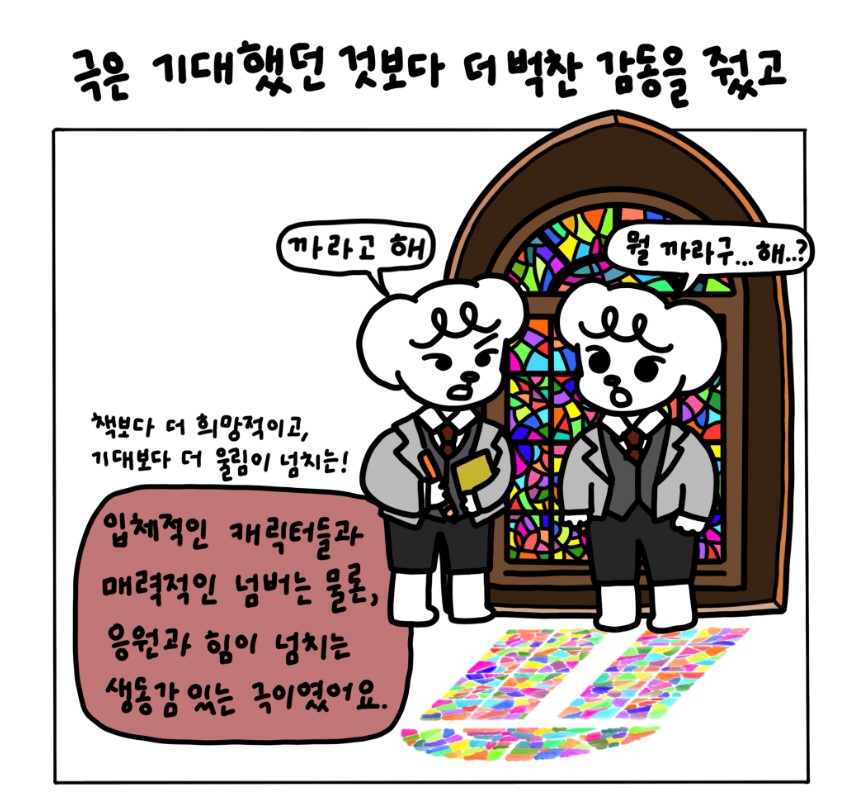 극은 기대했던 것보다 더 벅찬 감동을 줬고
까라고 해
뭘 까라구...해..?
책보다 더 희망적이고,
기대보다 더 울림이 넘치는!
입체적인 캐릭터들과
매력적인 넘버는 물론,
응원과 힘이 넘치는
생동감 있는 극이였어요.